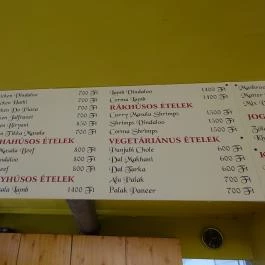 Chicken Vindaloo 700 Ft
Chicken Balti 700 Ft
Chicken Do Piaza 700 Ft
Chicken Jalfrezi 700 Ft
Chicken Biryani 850 Ft
Chicken Tikka Masala 700 Ft
HAHÚSOS ÉTELEK
Masala Beef 800 Ft
Vindaloo 800 Ft
Beef 800 Ft
NYHÚSOS ÉTELEK
Masala Lamb 1400 Ft
Lamb Vindaloo 1400 Ft
Corma Lamb 1400 Ft
RÁKHÚSOS ÉTELEK
Curry Masala Shrimps 1500 Ft
Shrimps Vindaloo 1500 Ft
Corma Shrimps 1500 Ft
VEGETÁRIÁNUS ÉTELEK
Punjabi Chole 600 Ft
Dal Makhani 600 Ft
Dal Tarka 600 Ft
Alu Palak 700 Ft
Palak Paneer 700 Ft
Mushroo
Mutter
Mix
JOG